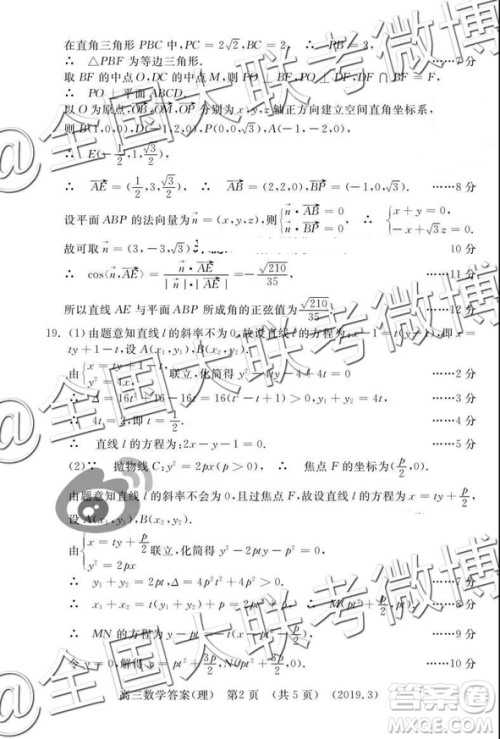 在直角三角形 PBC 中,PC=2√2,BC=
∴ △PBF 为等边三角形.
取 BF 的中点 O,DC 的中点 M,
∴ PO⊥平面 ABCD.
以 O 为原点,OB,OM,OP 分别为 x,y,z 轴正方向建立空间直角坐标系,
则 B(1,0,0),D(-1,2,0),P(0,0,√3),A(-1,-2,0).
∴ E(-1/2,1,√3/2)
∴ AE=(1/2,3,√3/2). ∴ AB=(2,2,0),BP=(-1,0,√3). ……8 分
设平面 ABP 的法向量为 n=(x,y,z),则{n·AB=0 n·BP=0 ∴ {x+y=0 -x+√3z=0.
故可取 n=(3,-3,√3) 10 分
∴ cos⟨n,AE⟩=n·AE/|n|·|AE|=-√210/35 ……11 分
所以直线 AE 与平面 ABP 所成角的正弦值为 √210/35. ……12 分
19. (1)由题意知直线 l 的斜率不为 0,故设直线 l 的方程为 x-1=t(y-1),即 x=
ty+1-t,设 A(x₁,y₁),B(x₂,y₂).
由 联立,化简得 ……2 分
∴ Δ=16t²+16-16=16t²>0, ……3 分
∴ 4t=2,即 t=1/2. ……4 分
∴ 直线 l 的方程为:2x-y-1=0. ……5 分
(2)∵ 抛物线 C:y²=2px(p>0), ∴ 焦点 F 的坐标为(p/2,0).
由题意知直线 l 的斜率不会为 0,且过焦点 F,故设直线 l 的方程为 x=ty+p/2,
设 A(x₁,y₁),B(x₂,y₂).
由{x=ty+p/2 y²=2px 联立,化简得 y²-2pty-p²=0.
∴ y₁+y₂=2pt,Δ=4p²t²+4p²>0. 7 分
∴ x₁+x₂=t(y₁+y₂)+p=2pt²+p. ∴ M(pt²+p/2,pt). ……8 分
∴ MN 的方程为 y-pt=-t(x-pt²-p/2). ……9 分
令 y=0,解得 x=pt²+3p/2,N(pt²+3p/2,0). ……10 分
高三数学答案(理) 第2页 (共5页) (2019.3)
@全国大联考微博
@全国大联考微博
@全国大联考微博